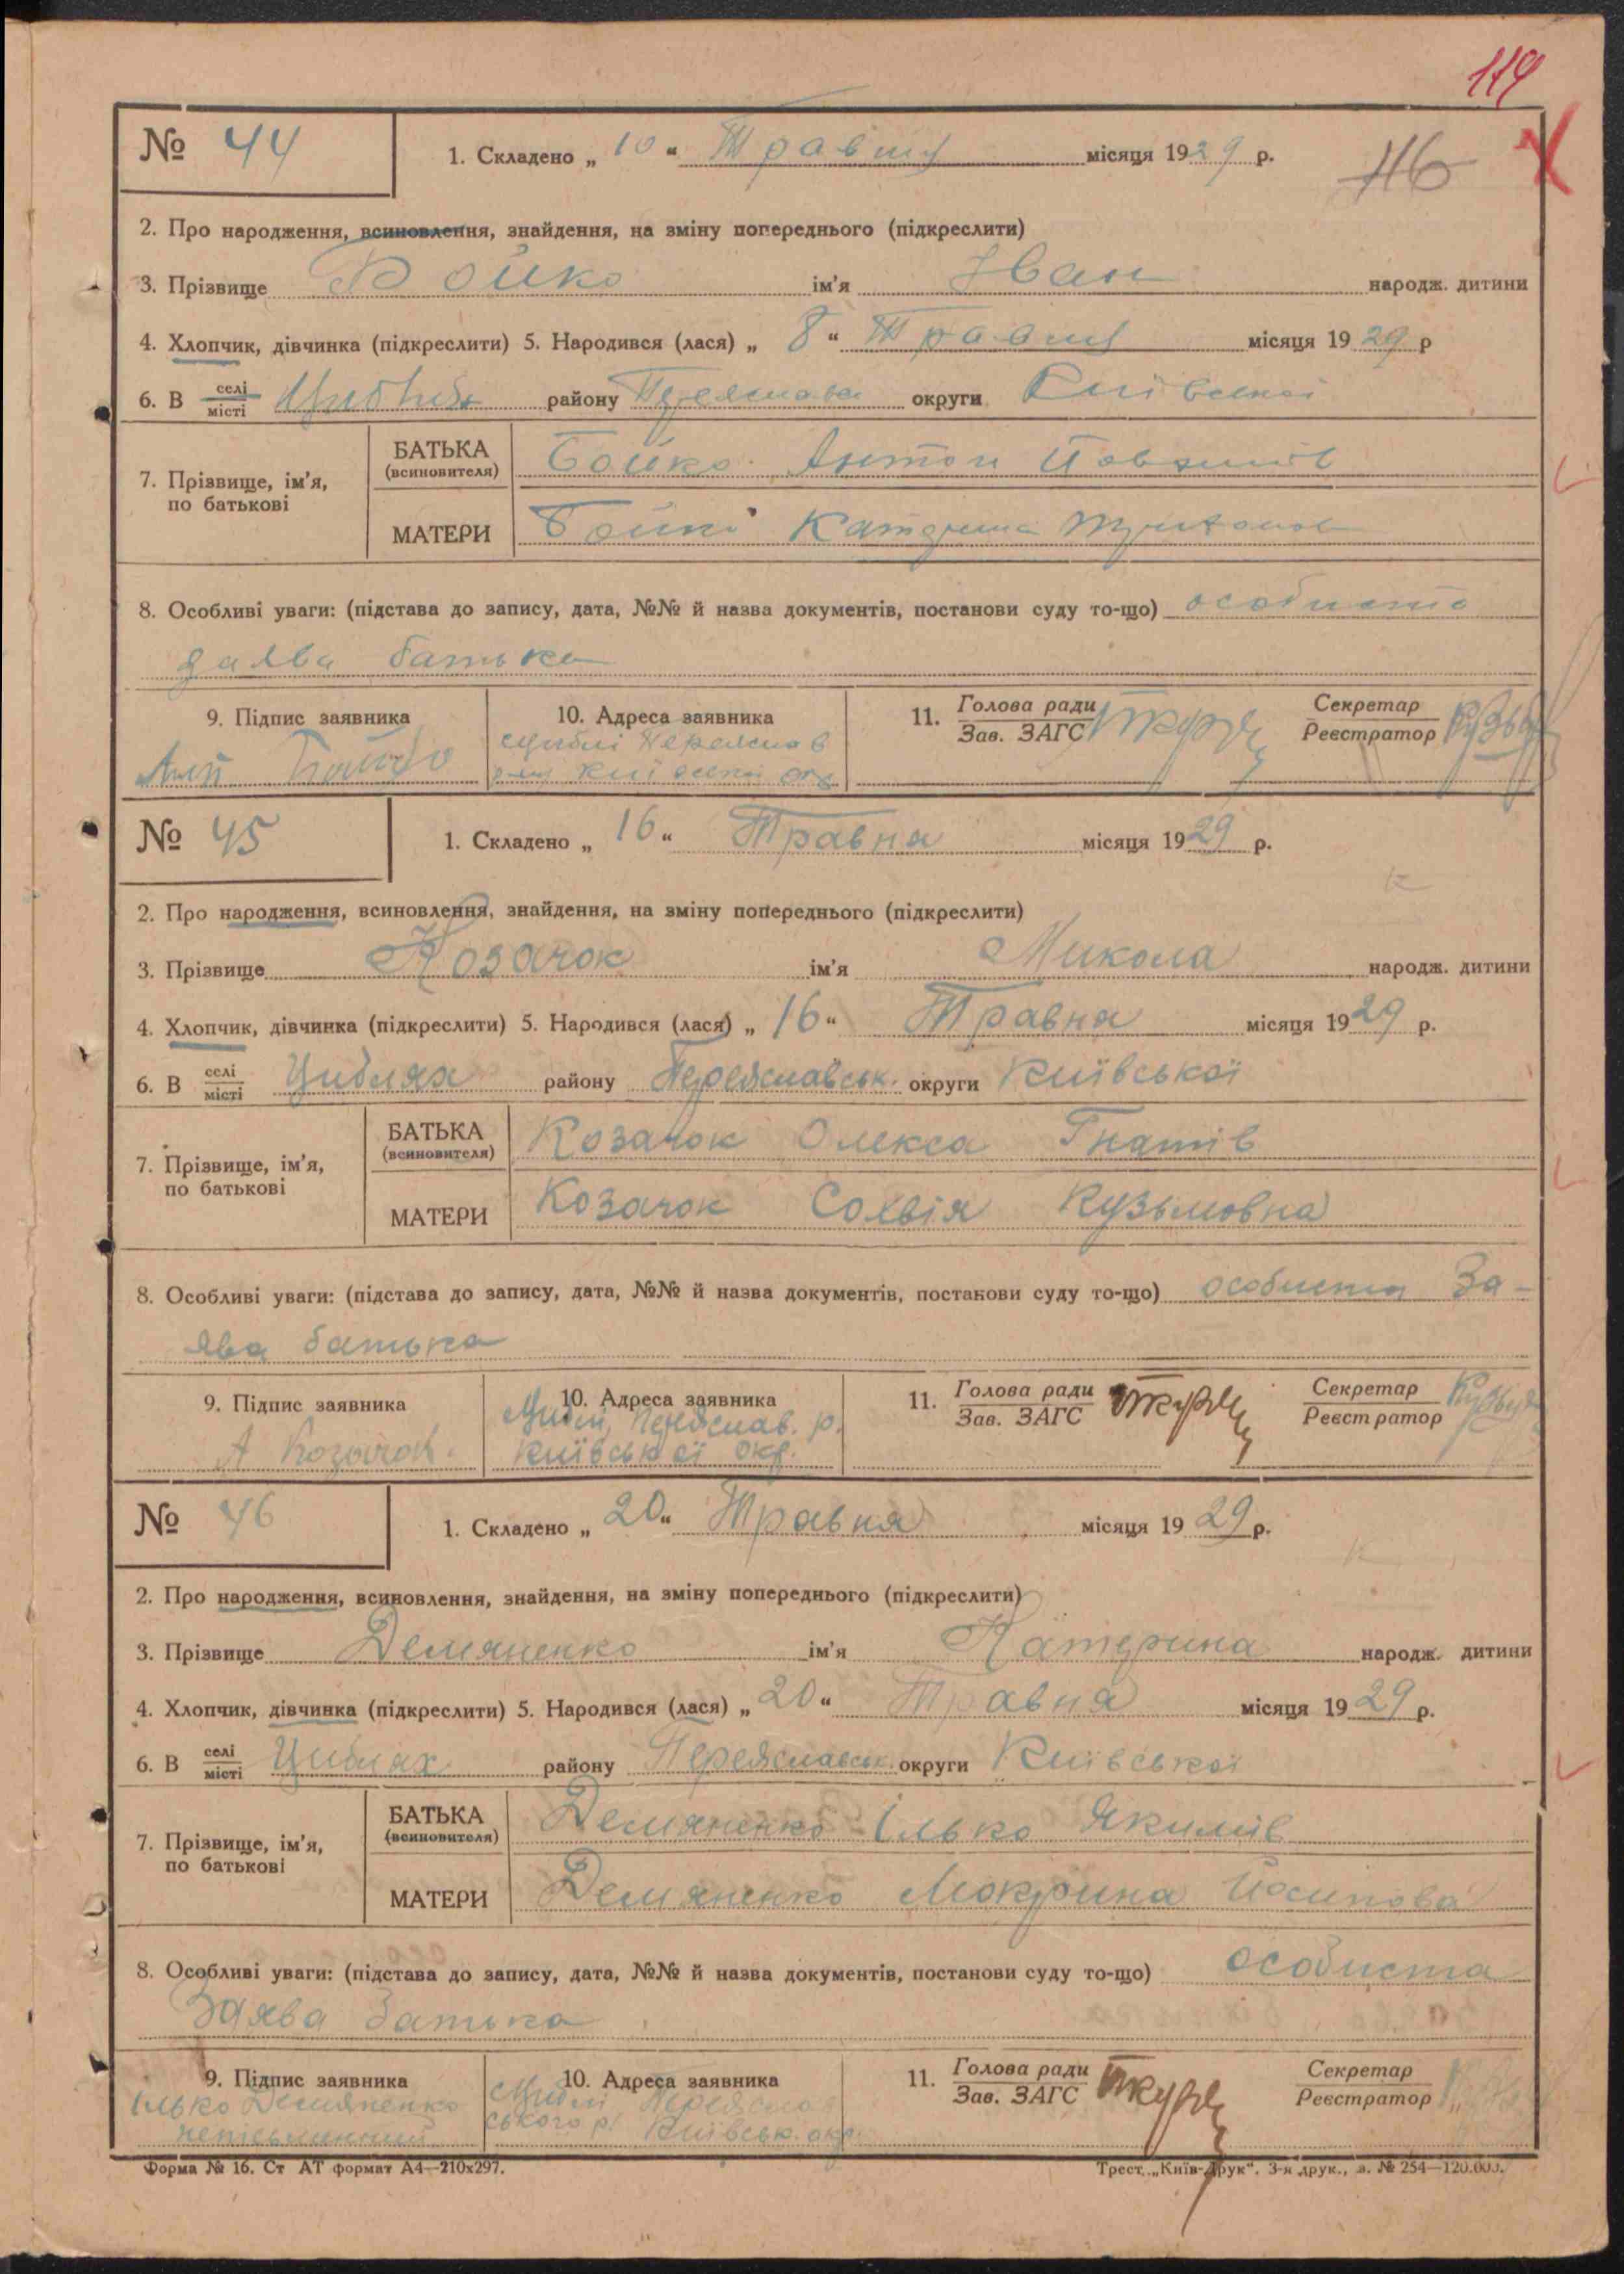 114
№ 44
1. Складено „ 10 “ Травня місяця 1929 р.
116
2. Про народження, всиновлення, знайдення, на зміну попереднього (підкреслити)
3. Прізвище Бойко ім’я Іван народж. дитини
4. Хлопчик, дівчинка (підкреслити) 5. Народився (лася) „ 8 “ Травня місяця 1929 р
6. В селі/місті району Переяслав округи Київської
7. Прізвище, ім’я, по батькові
БАТЬКА (всиновителя) Бойко Антон
МАТЕРИ Бойко Катерина
8. Особливі уваги: (підстава до запису, дата, №№ й назва документів, постанови суду то-що) особиста
заява батька
9. Підпис заявника
10. Адреса заявника
11. Голова ради / Зав. ЗАГС
Секретар / Реєстратор
Бойко
Циблі Переяслав
рай Київської окр
№ 45
1. Складено „ 16 “ Травня місяця 1929 р.
2. Про народження, всиновлення, знайдення, на зміну попереднього (підкреслити)
3. Прізвище Козачок ім’я Микола народж. дитини
4. Хлопчик, дівчинка (підкреслити) 5. Народився (лася) „ 16 “ Травня місяця 1929 р.
6. В селі/місті Циблях району Переяславськ. округи Київської
7. Прізвище, ім’я, по батькові
БАТЬКА (всиновителя) Козачок Олекса Гнатів
МАТЕРИ Козачок Софія Кузьмовна
8. Особливі уваги: (підстава до запису, дата, №№ й назва документів, постанови суду то-що) особиста За-
ява батька
9. Підпис заявника
10. Адреса заявника
11. Голова ради / Зав. ЗАГС
Секретар / Реєстратор
А Козачок.
Циблі, Переяслав. р.
Київської окр.
№ 46
1. Складено „ 20 “ Травня місяця 1929 р.
2. Про народження, всиновлення, знайдення, на зміну попереднього (підкреслити)
3. Прізвище Демяненко ім’я Катерина народж. дитини
4. Хлопчик, дівчинка (підкреслити) 5. Народився (лася) „ 20 “ Травня місяця 1929 р.
6. В селі/місті Циблях району Переяславськ. округи Київської
7. Прізвище, ім’я, по батькові
БАТЬКА (всиновителя) Демяненко Ілько Якимів
МАТЕРИ Демяненко Мокрина Йосипова
8. Особливі уваги: (підстава до запису, дата, №№ й назва документів, постанови суду то-що) особиста
Заява батька
9. Підпис заявника
10. Адреса заявника
11. Голова ради / Зав. ЗАГС
Секретар / Реєстратор
Ілько Демяненко
неписьменний
Циблі Переясла
ського р. Київськ. окр.
Форма № 16. Ст АТ формат А4—210х297.
Трест „Київ-Друк“. 3-я друк., з. № 254—120.000.